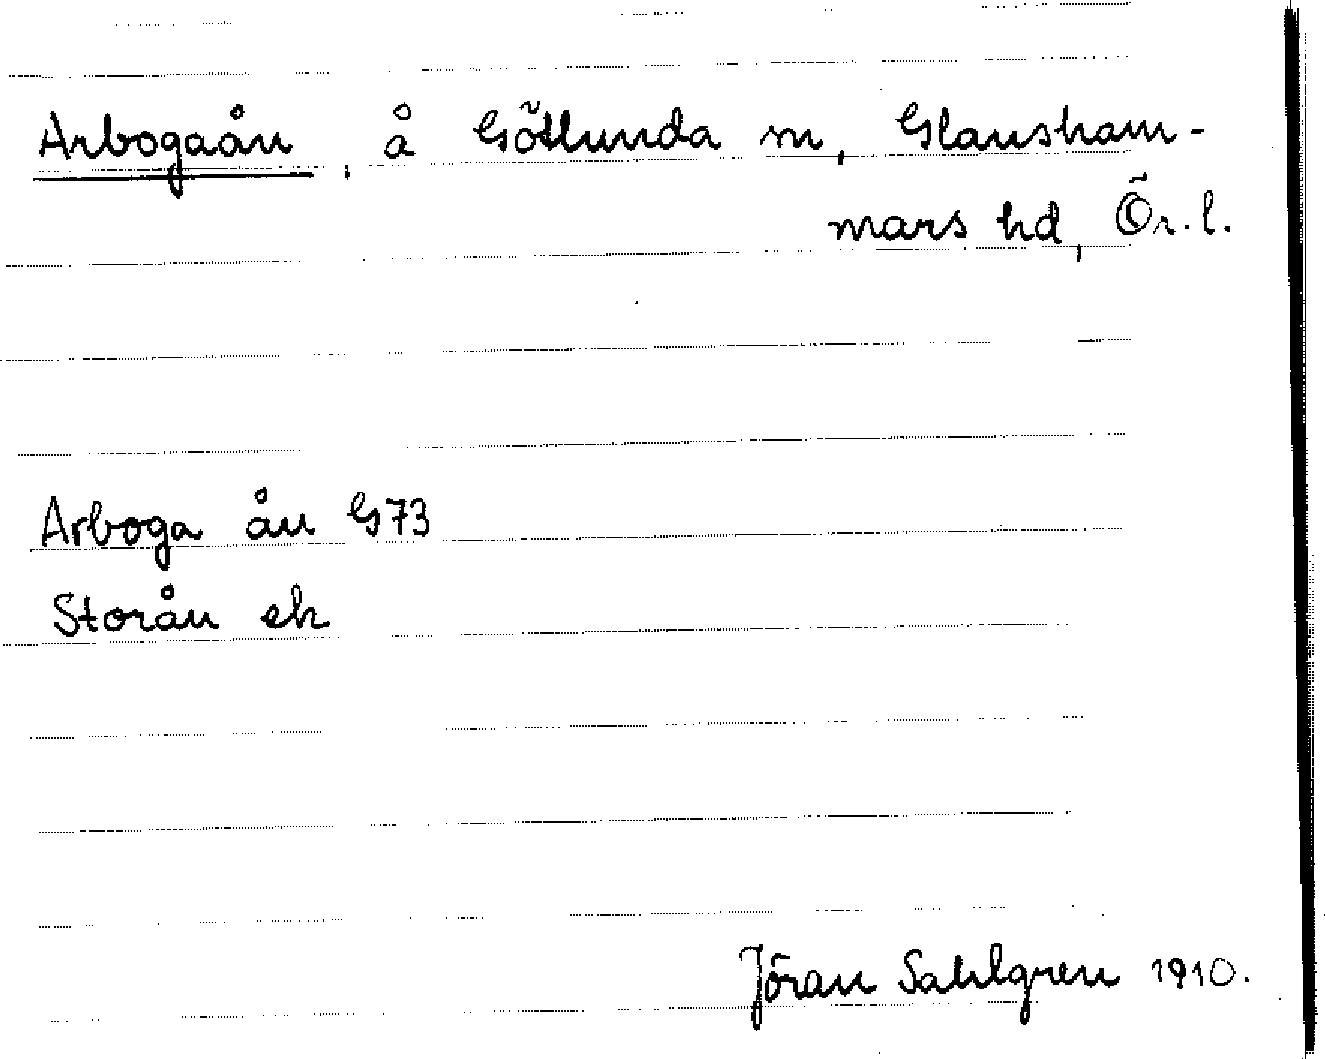 Arbogaån, å Götlunda sn, Glansham-
mars hd, Ör. l.
Arboga ån G73
Storån ek
Jöran Sahlgren 1910.